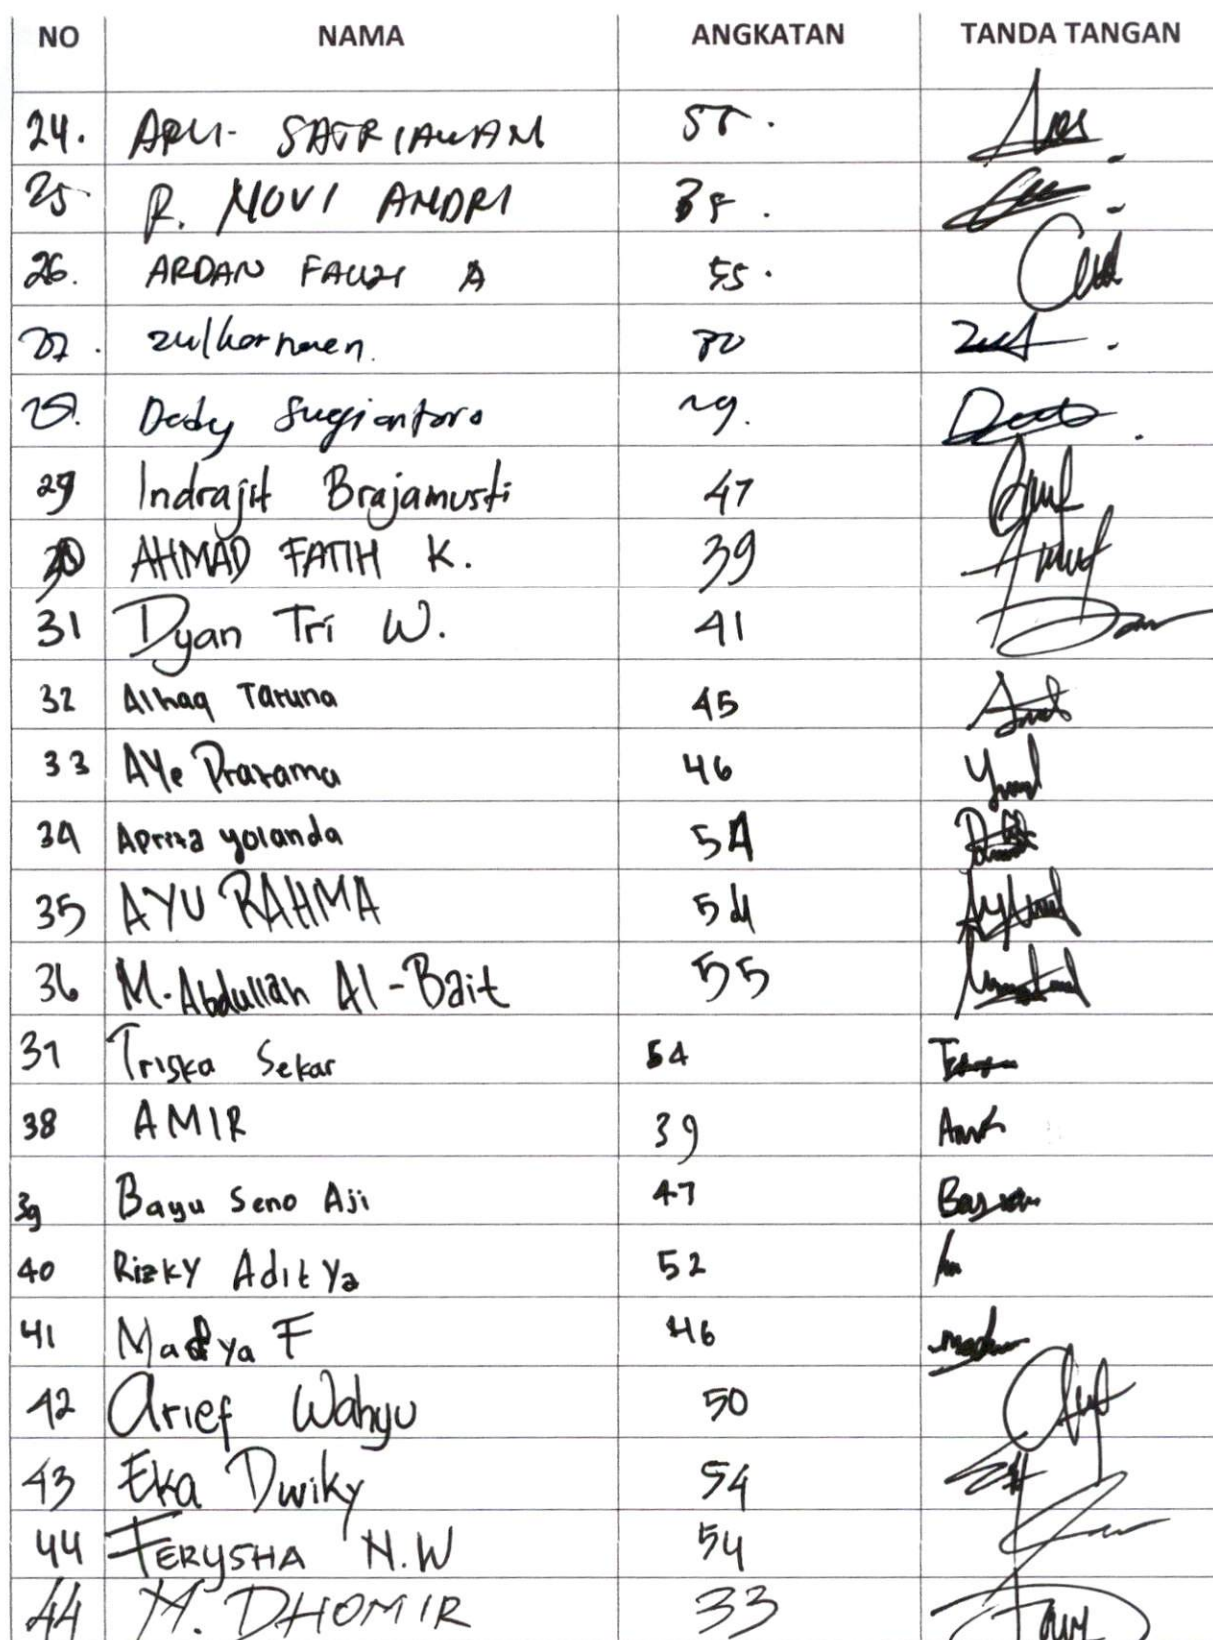 NO NAMA ANGKATAN TANDA TANGAN
24. ARLI SATRIAWAN 55.
25 R. NOVI ANDRI 38.
26. ARDAN FAUZI A 55.
27. zulkarnaen. 30
28. Dedy Sugiantoro 29.
29 Indrajit Brajamusti 47
30 AHMAD FATIH K. 39
31 Dyan Tri W. 41
32 Alhaq Taruna 45
33 AYe Pratama 46
34 Apriza yolanda 54
35 AYU RAHMA 54
36 M. Abdullah Al-Bait 55
37 Triska Sekar 54
38 AMIR 39
39 Bayu Seno Aji 47
40 Rizky Aditya 52
41 Madya F 46
42 Arief Wahyu 50
43 Eka Dwiky 54
44 FERYSHA N.W 54
44 M. DHOMIR 33